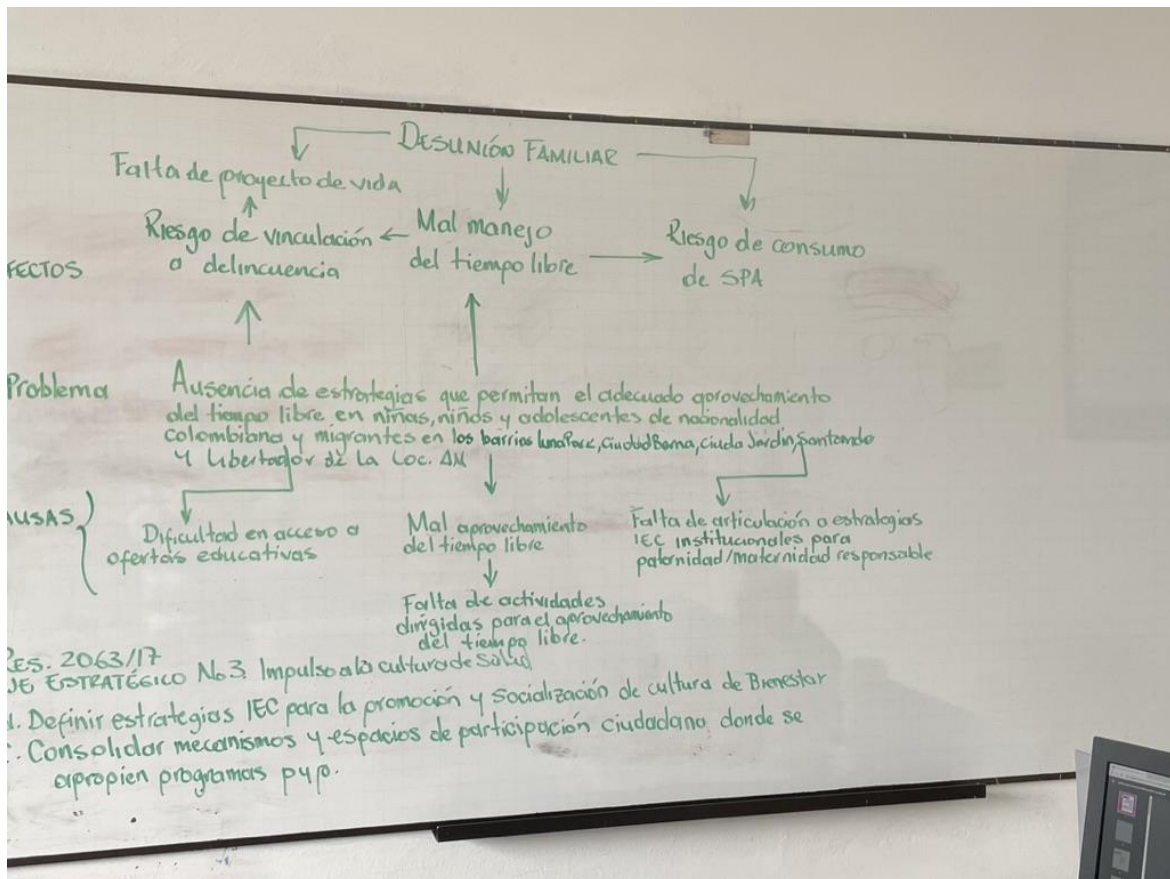 DESUNIÓN FAMILIAR
Falta de proyecto de vida
Riesgo de vinculación
a delincuencia
Mal manejo
del tiempo libre
Riesgo de consumo
de SPA
FECTOS
Problema
Ausencia de estrategias que permitan el adecuado aprovechamiento
del tiempo libre en niñas, niños y adolescentes de nacionalidad
colombiana y migrantes en los barrios Luna Park, Ciudad Berna, Ciuda Jardin, Santander
y Libertador de la Loc. AN
AUSAS
Dificultad en acceso a
ofertas educativas
Mal aprovechamiento
del tiempo libre
Falta de actividades
dirigidas para el aprovechamiento
del tiempo libre.
Falta de articulación a estrategias
IEC institucionales para
paternidad/maternidad responsable
RES. 2063/17
JE ESTRATÉGICO No 3. Impulso a la cultura de Salud
1. Definir estrategias IEC para la promoción y socialización de cultura de Bienestar
. Consolidar mecanismos y espacios de participación ciudadana donde se
apropien programas pyp.